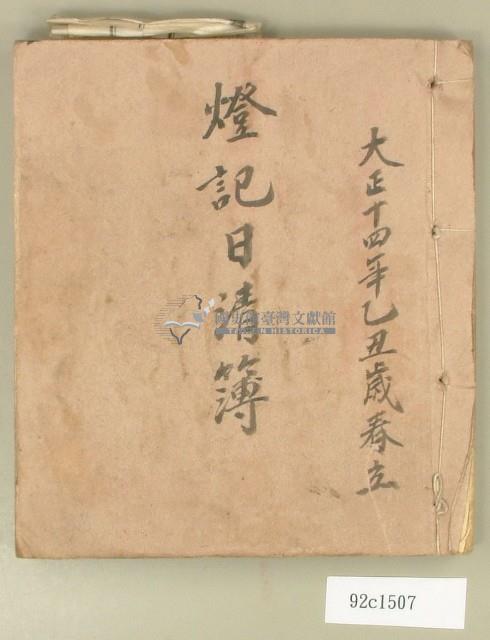 大正十四年乙丑歳春立
燈記日清簿
國史館臺灣文獻館
TAIWAN HISTORICA
92c1507